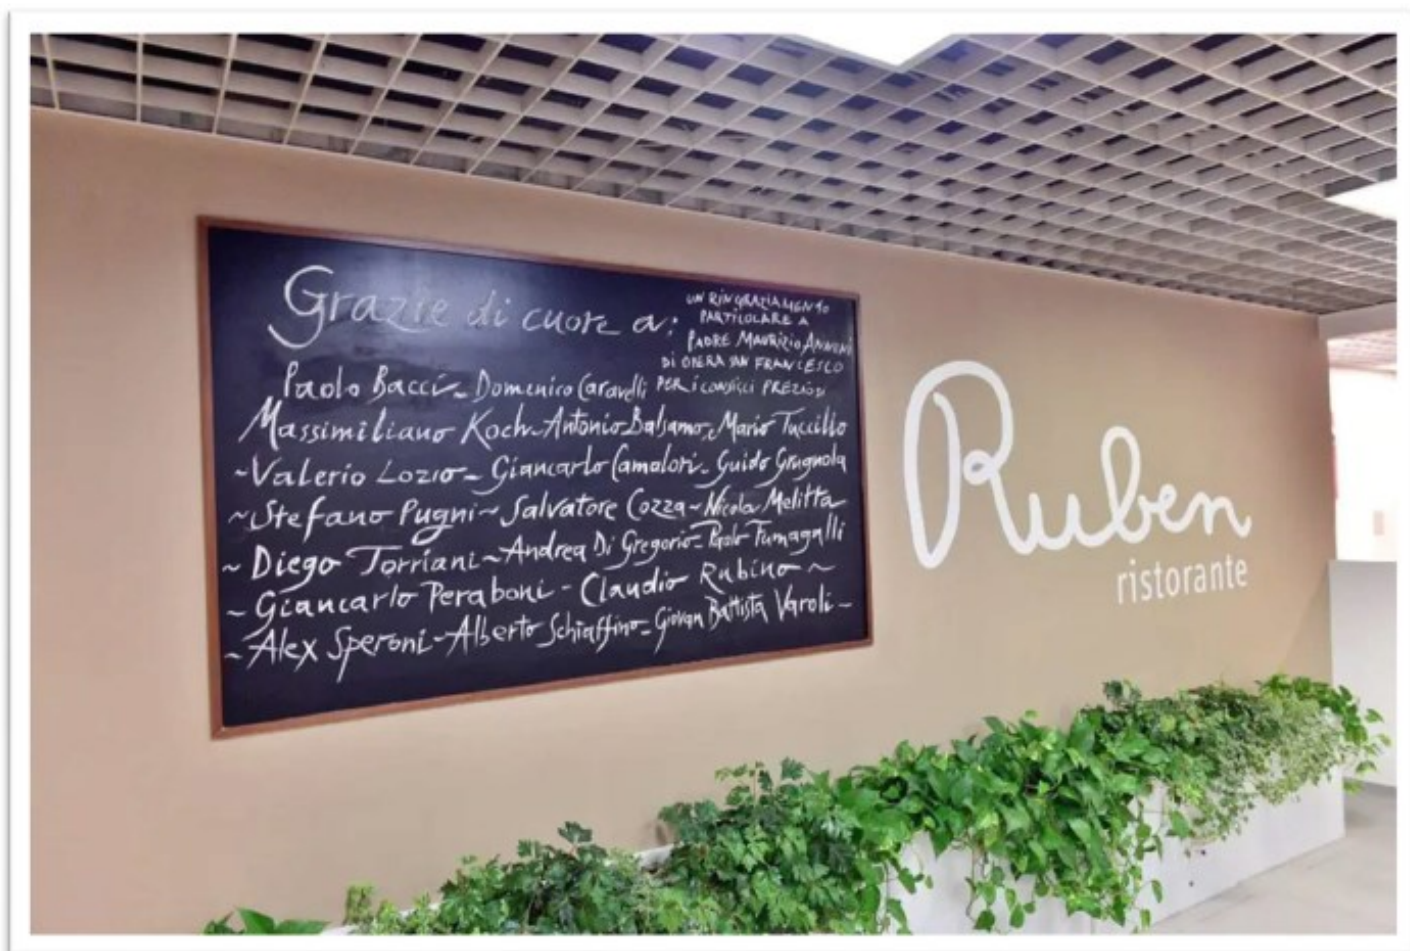 Grazie di cuore a:
UN RINGRAZIAMENTO
PARTICOLARE A
PADRE MAURIZIO ANNONI
DI OPERA SAN FRANCESCO
PER I CONSIGLI PREZIOSI
Paolo Bacci ~ Domenico Caravelli
Massimiliano Koch ~ Antonio Balsamo ~ Mario Tuccillo
~ Valerio Lozio ~ Giancarlo Camalori ~ Guido Grugnola
~ Stefano Pugni ~ Salvatore Cozza ~ Nicola Melitta
~ Diego Torriani ~ Andrea Di Gregorio ~ Paolo Fumagalli
~ Giancarlo Peraboni - Claudio Rubino ~
~ Alex Speroni ~ Alberto Schiaffino ~ Giovan Battista Varoli ~
Ruben
ristorante